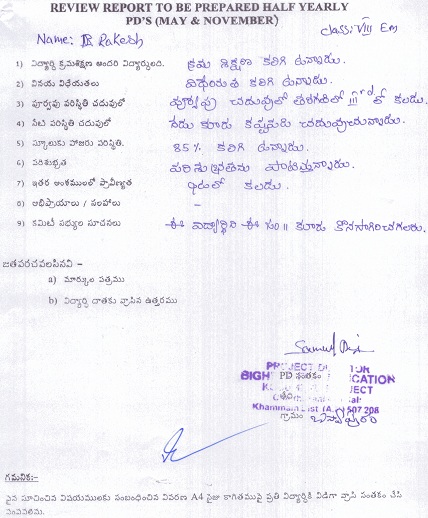 REVIEW REPORT TO BE PREPARED HALF YEARLY
PD'S (MAY & NOVEMBER)
Name: B Rakesh
Class: VIII Em
1) విద్యార్థి క్రమశిక్షణ అందరి విద్యార్థులది. క్రమ శిక్షణ కలిగి ఉన్నాడు.
2) వినయ విధేయతలు విధేయత కలిగి ఉన్నాడు.
3) పూర్వపు పరిస్థితి చదువులో పూర్వపు చదువులో తరగతిలో III rd లో కలడు.
4) నేటి పరిస్థితి చదువులో నేడు కూడు కష్టపడి చదువుచున్నాడు.
5) స్కూలుకు హాజరు పరిస్థితి. 85% కలిగి ఉన్నాడు.
6) పరిశుభ్రత పరిశుభ్రతను పాటిస్తున్నాడు.
7) ఇతర అంశములలో ప్రావీణ్యత కలడు.
8) అభిప్రాయాలు / సలహాలు –
9) కమిటీ సభ్యుల సూచనలు ఈ విద్యార్థిని ఈ సం|| కూడా కొనసాగించగలరు.
జతపరచవలసినవి –
a) మార్కుల పత్రము
b) విద్యార్థి దాతకు వ్రాసిన ఉత్తరము
PD సంతకం
గ్రామం
507 208
గమనిక:-
పైన సూచించిన విషయములకు సంబంధించిన వివరణ A4 సైజు కాగితముపై ప్రతి విద్యార్థికి విడిగా వ్రాసి సంతకం చేసి
పంపవలెను.